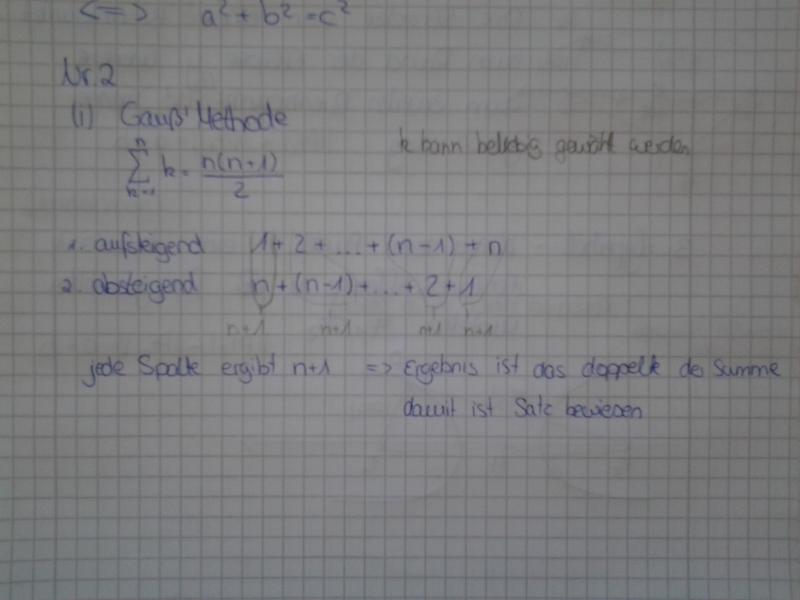 <=> a² + b² = c²
Nr. 2
(i) Gauß' Methode
k kann beliebig gewählt werden
n∑k=1 k = n(n+1)/2
1. aufsteigend 1 + 2 + ... + (n-1) + n
2. absteigend n + (n-1) + ... + 2 + 1
n+1 n+1 n+1 n+1
jede Spalte ergibt n+1 => Ergebnis ist das doppelte der Summe
damit ist Satz bewiesen